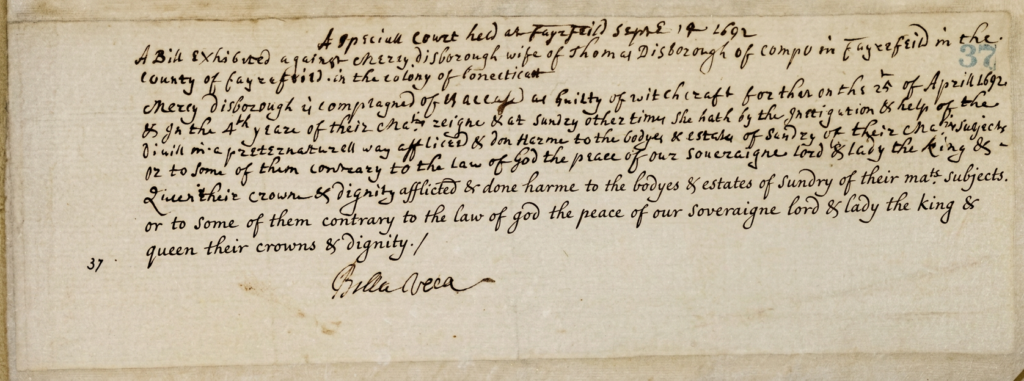 A Speciall Court held at Fayrfeild Septr 14 1692
A Bill Exhibited against Mercy disborough wife of Thomas Disborough of Compo in Fayrefeild in the
37
County of fayrefeild in the colony of Conecticatt
Mercy Disborough is complayned of & accused as guilty of witchcraft for that on the 25 of Aprill 1692
& in the 4th yeare of their Maties reigne & at sundry other times she hath by the Instigation & help of the
Divill in a preternaturell way afflicted & don Harme to the bodyes & estates of Sundry of their Maties subjects
or to some of them contrary to the law of God the peace of our soveraigne lord & lady the king & -
Queen their crowne & dignity afflicted & done harme to the bodyes & estates of sundry of their mats subjects.
or to some of them contrary to the law of god the peace of our soveraigne lord & lady the king &
queen their crowns & dignity./
37.
Billa Vera